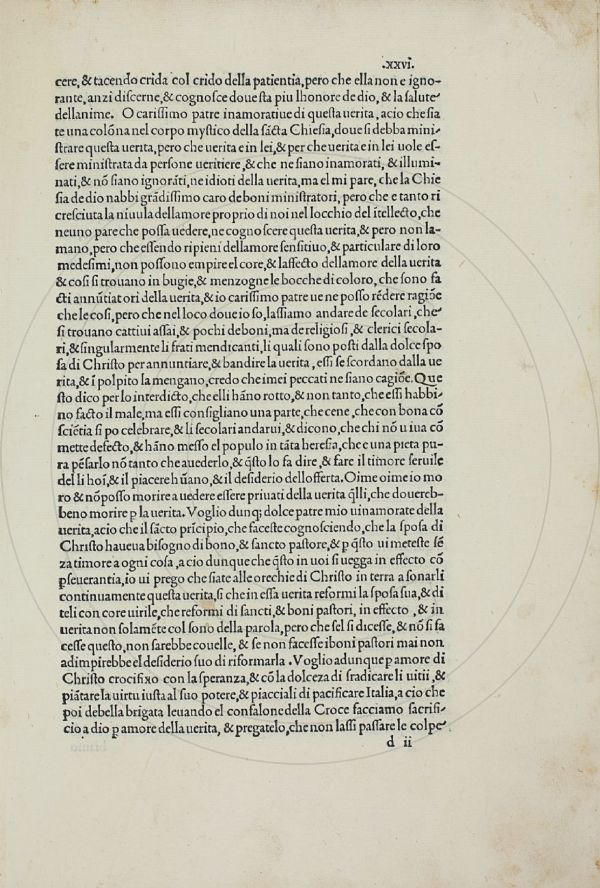 .xxvi.
cere, & tacendo crida col crido della patientia, pero che ella non e igno-
rante, anzi discerne, & cognosce doue sta piu lhonore de dio, & la salute
dellanime. O carissimo patre inamoratiue di questa uerita, acio che sia
te una colōna nel corpo mystico della sācta Chiesia, doue si debba mini-
strare questa uerita, pero che uerita e in lei, & per che uerita e in lei uole es-
sere ministrata da persone ueritiere, & che ne siano inamorati, & illumi-
nati, & nō siano ignorāti, ne idioti della uerita, ma el mi pare, che la Chie
sia de dio nabbi grādissimo caro de boni ministratori, pero che e tanto ri
cresciuta la niuula dellamore proprio di noi nel locchio del ītellecto, che
neuno pare che possa uedere, ne cognoscere questa uerita, & pero non la-
mano, pero che essendo ripieni dellamore sensitiuo, & particulare di loro
medesimi, non possono empire el core, & laffecto dellamore della uerita
& cosi si trouano in bugie, & menzogne le bocche di coloro, che sono fa
cti annūtiatori della uerita, & io carissimo patre ue ne posso rēdere ragiōe
che le cosi, pero che nel loco doue io so, lassiamo andare de secolari, che
si trouano cattiui assai, & pochi de boni, ma de religiosi, & clerici secola-
ri, & singularmente li frati mendicanti, li quali sono posti dalla dolce spo
sa di Christo per annuntiare, & bandire la uerita, essi se scordano dalla ue
rita, & ī polpito la mengano, credo che imei peccati ne siano cagiōe. Que
sto dico per lo interdicto, che elli hāno rotto, & non tanto, che essi habbi-
no facto il male, ma essi consigliano una parte, che cene, che con bona cō
sciētia si po celebrare, & li secolari andarui, & dicono, che chi nō u iua cō
mette defecto, & hāno messo el populo in tāta heresia, che e una pieta pu-
ra pēsarlo nō tanto che auederlo, & q̄sto lo fa dire, & fare il timore seruile
del li hoī, & il piacere hūano, & il desiderio dellofferta. Oime oime io mo
ro & nō posso morire a uedere essere priuati della uerita q̄lli, che douereb-
beno morire p la uerita. Voglio dunq; dolce patre mio uinamorate della
uerita, acio che il sācto prīcipio, che faceste cognosciendo, che la sposa di
Christo haueua bisogno di bono, & sancto pastore, & p q̄sto ui meteste sē
za timore a ogni cosa, a cio dunque che q̄sto in uoi si uegga in effecto cō
pseuerantia, io ui prego che siate alle orechie di Christo in terra a sonarli
continuamente questa uerita, si che in essa uerita reformi la sposa sua, & di
teli con core uirile, che reformi di sancti, & boni pastori, in effecto, & in
uerita non solamēte col sono della parola, pero che sel si dicesse, & nō si fa
cesse questo, non sarebbe couelle, & se non facesse iboni pastori mai non
adimpirebbe el desiderio suo di riformarla. Voglio adunque p amore di
Christo crocifixo con la speranza, & cō la dolceza di sradicare li uitii, &
piātare la uirtu iusta al suo potere, & piacciali di pacificare Italia, a cio che
poi debella brigata leuando el confalone della Croce facciamo sacrifi-
cio a dio p amore della uerita, & pregatelo, che non lassi passare le colpe
d ii